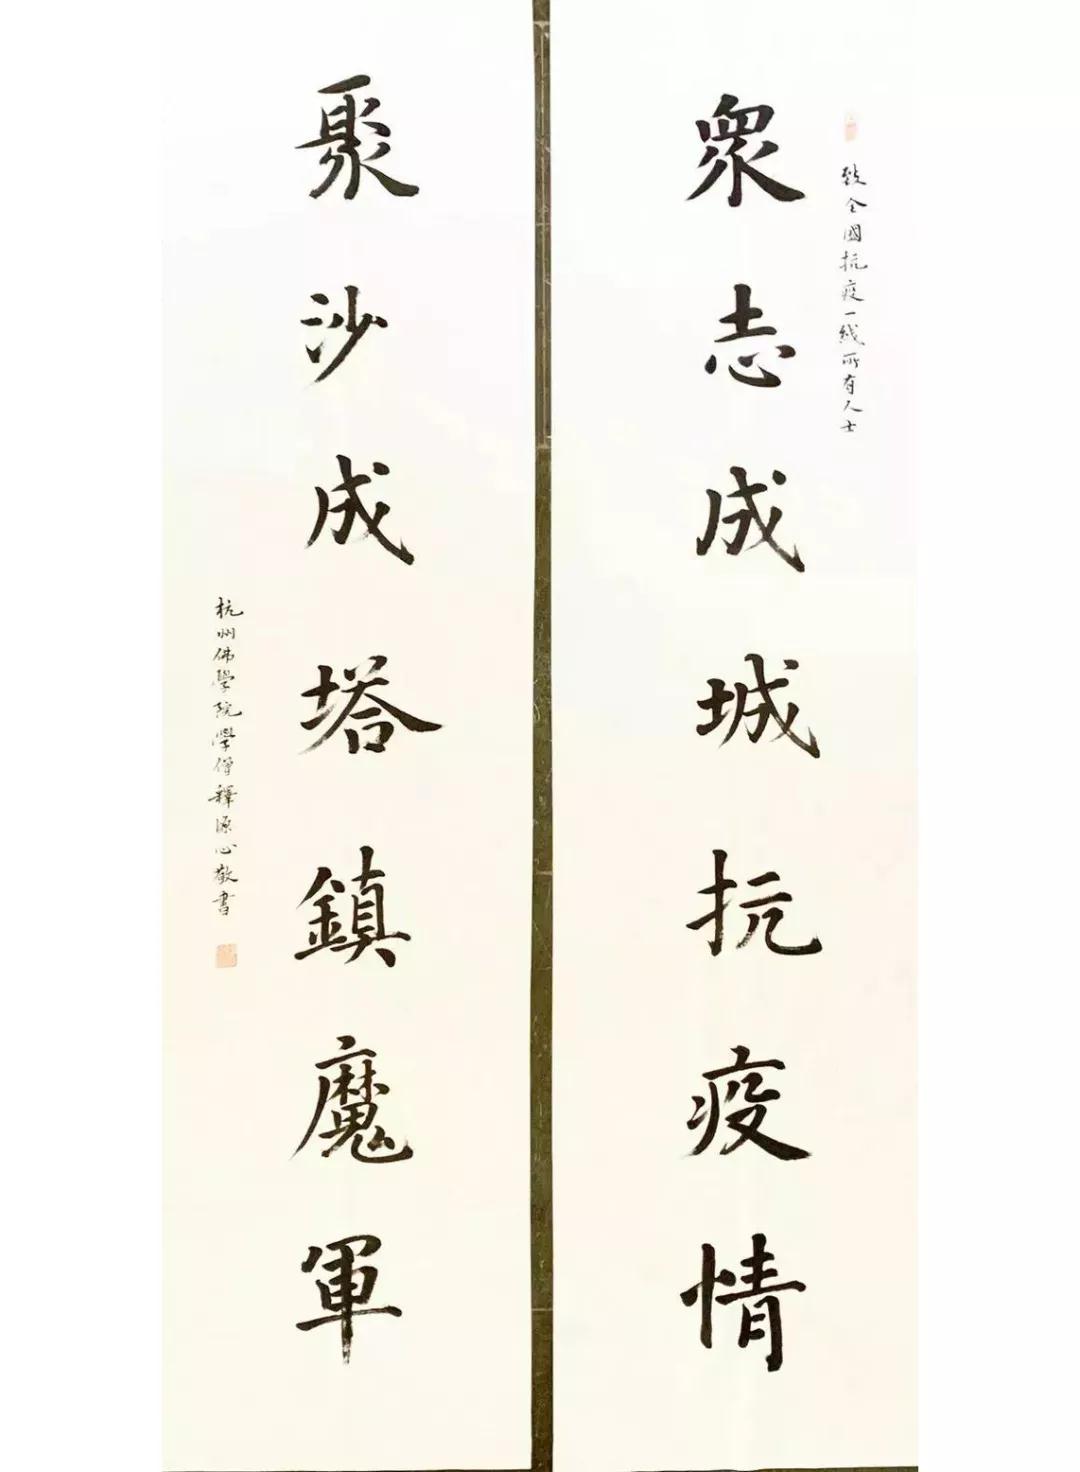 致全國抗疫一线所有人士
眾志成城抗疫情
聚沙成塔鎮魔軍
杭州佛學院學僧釋源心敬書